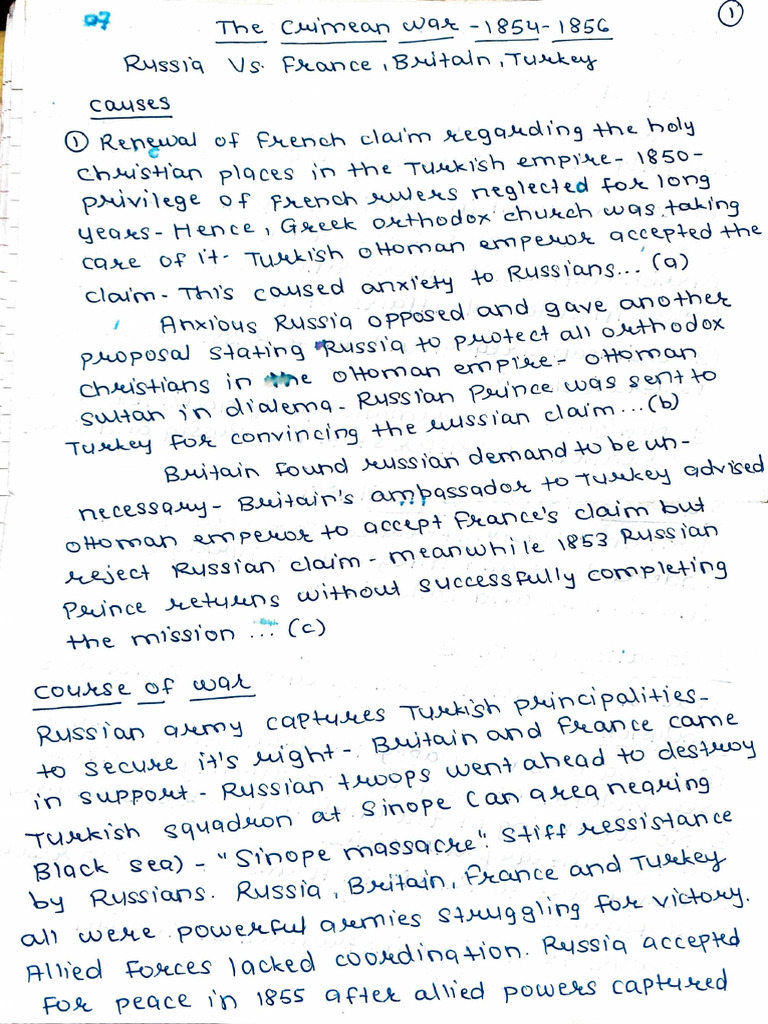 07
①
The Crimean War - 1854-1856
Russia Vs. France, Britain, Turkey
Causes
① Renewal of French claim regarding the holy
Christian places in the Turkish empire - 1850 -
privilege of French rulers neglected for long
years - Hence, Greek orthodox church was taking
care of it - Turkish ottoman emperor accepted the
claim - This caused anxiety to Russians... (a)
Anxious Russia opposed and gave another
proposal stating Russia to protect all orthodox
Christians in the ottoman empire - ottoman
sultan in dialema - Russian Prince was sent to
Turkey for convincing the russian claim... (b)
Britain found russian demand to be un-
necessary - Britain's ambassador to Turkey advised
ottoman emperor to accept France's claim but
reject Russian claim - meanwhile 1853 Russian
Prince returns without successfully completing
the mission ... (c)
Course of war
Russian army captures Turkish principalities -
to secure it's right - Britain and France came
in support - Russian troops went ahead to destroy
Turkish squadron at Sinope (an area nearing
Black sea) - "Sinope massacre". Stiff ressistance
by Russians. Russia, Britain, France and Turkey
all were powerful armies struggling for victory.
Allied Forces lacked coordination. Russia accepted
for peace in 1855 after allied powers captured